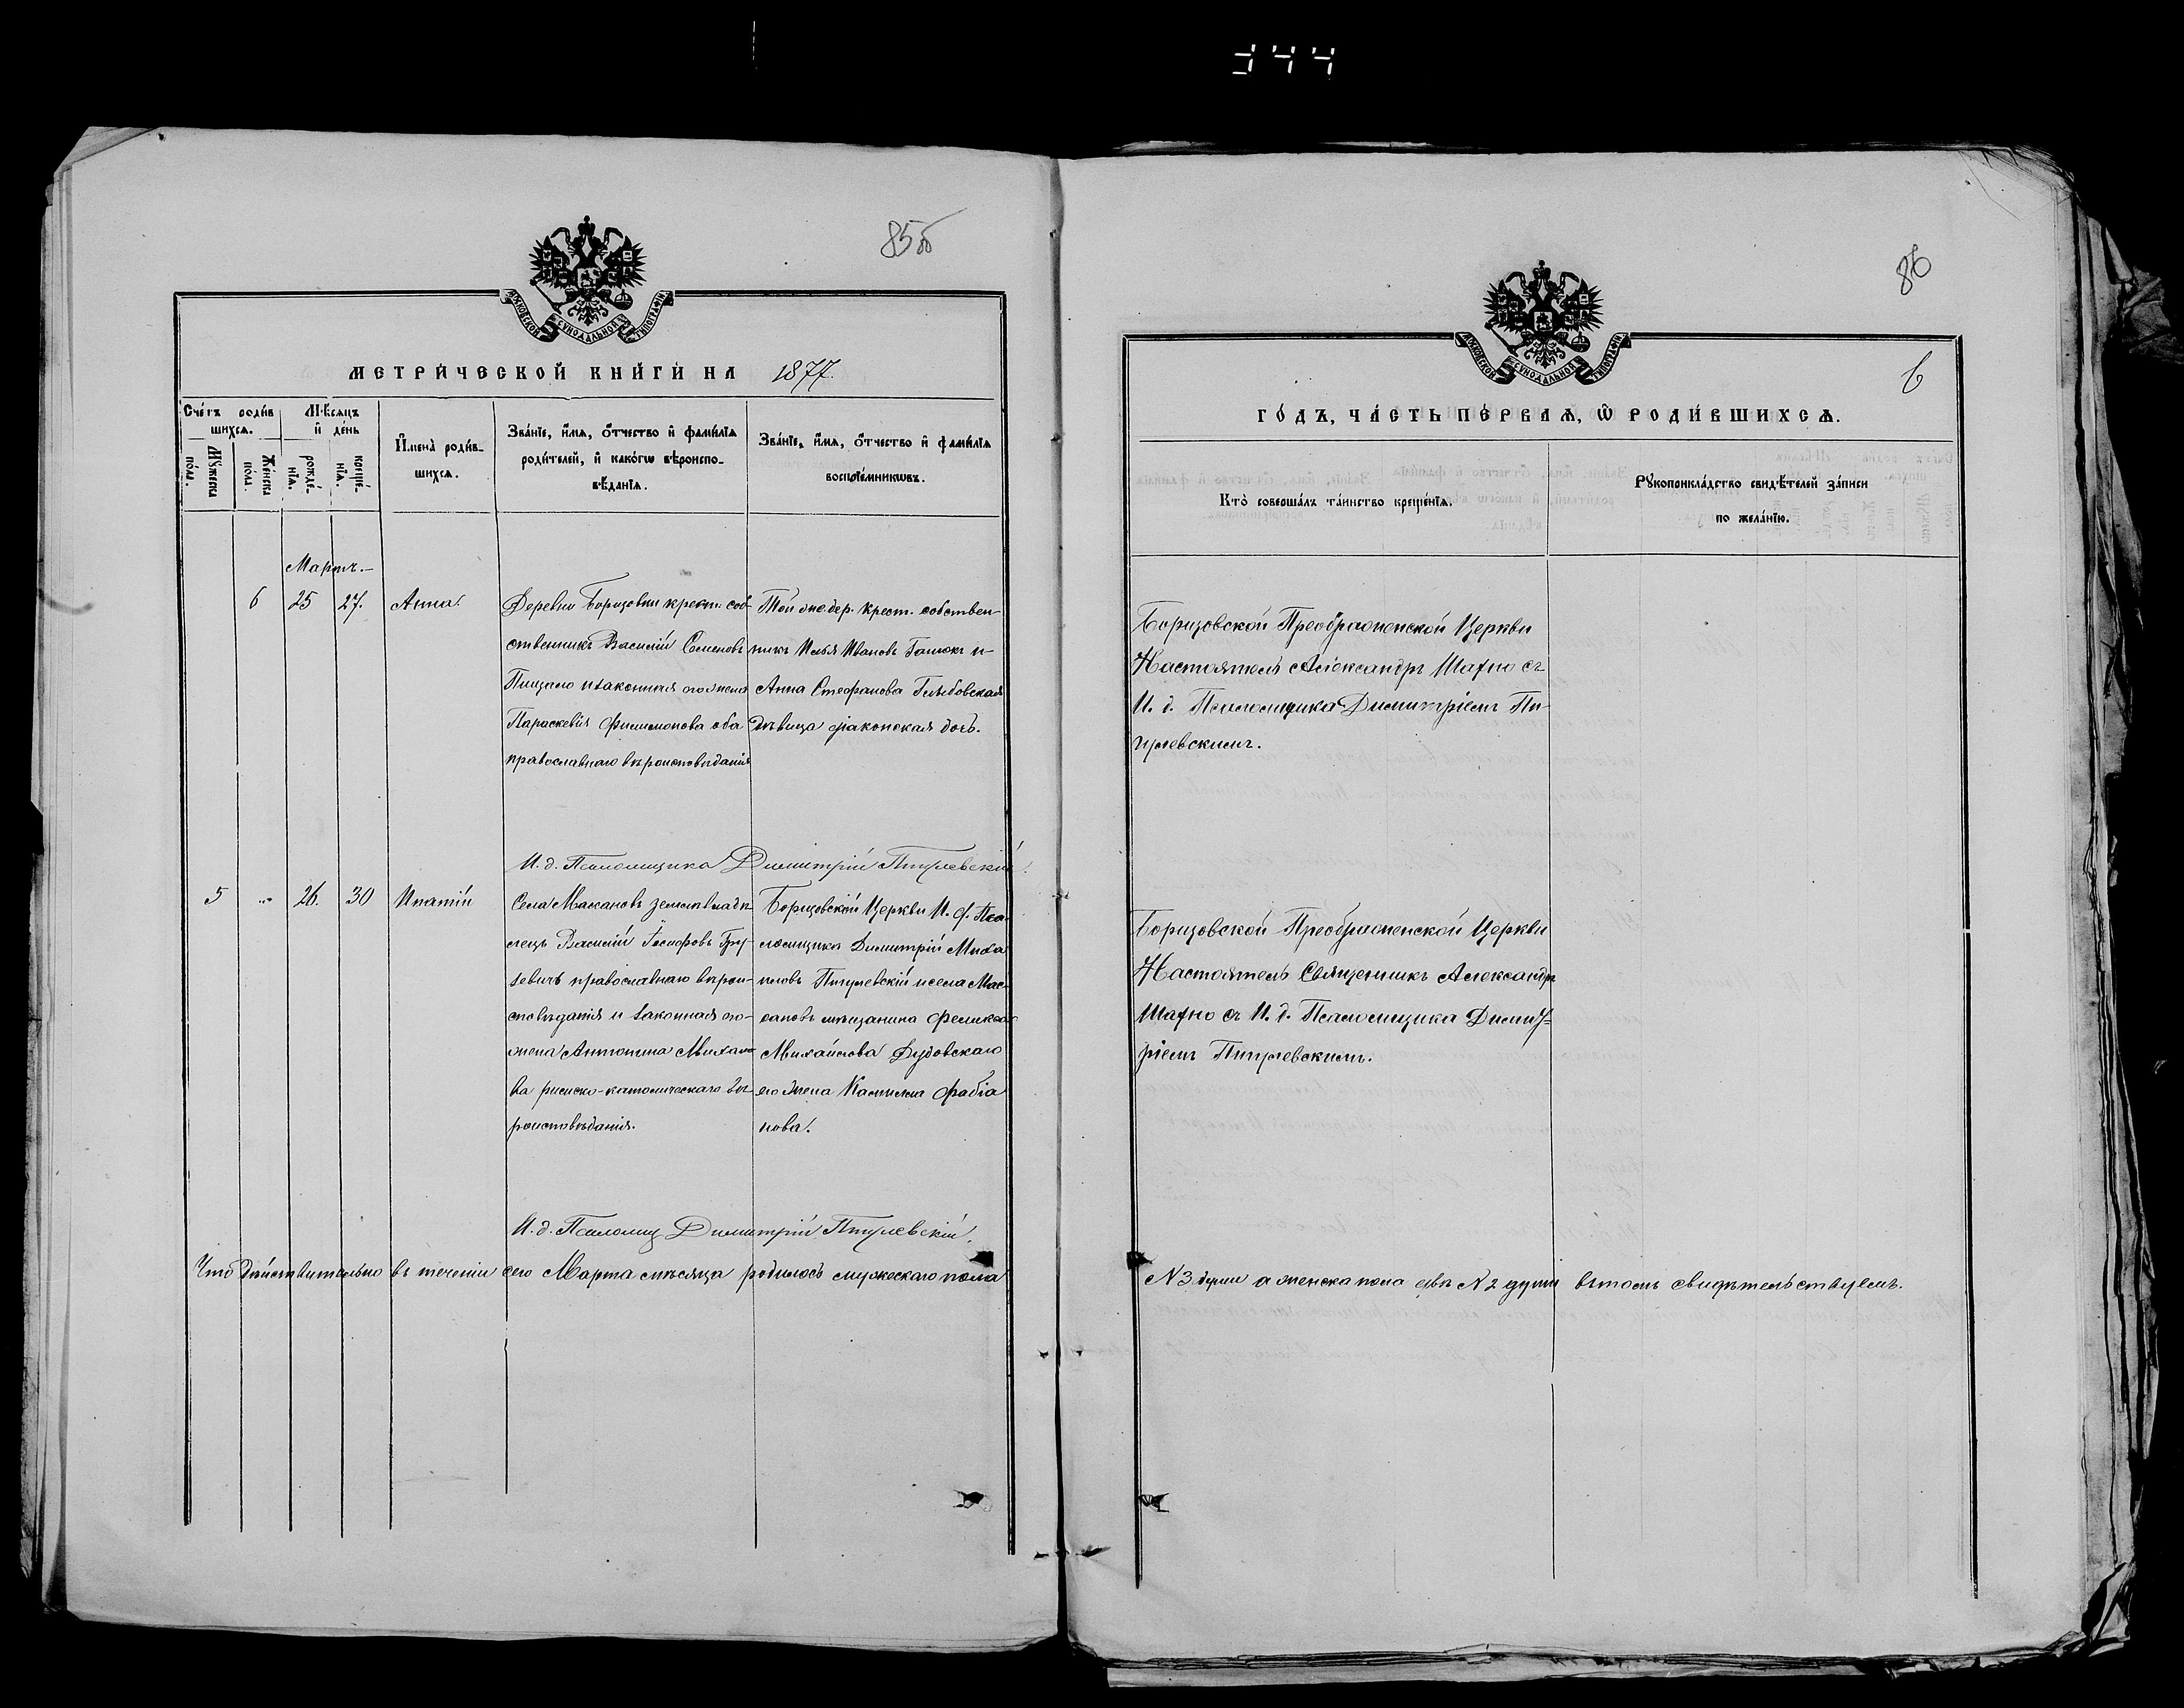 344
85об
МОСКОВСКОЙ СѴНОДАЛЬНОЙ ТИПОГРАФІИ
МЕТРИЧЕСКОЙ КНИГИ НА 1877.
Счетъ родив шихся.
Мѣсяцъ и день
Мужеска пола.
Женска пола.
рожде- нія.
креще- нія.
Имена родив-
шихся.
Званіе, имя, отчество и фамилія
родителей, и какогѡ вѣроиспо-
вѣданія.
Званіе, имя, отчество и фамилія
воспріемниковъ.
Мартъ.
6 25 27. Анна.
Деревни Боризовки крест. соб-
ственникъ Василій Семеновъ
Пищало и законная его жена
Параскевія Филимонова оба
православнаго вѣроисповѣданія
Той же дер. крест. собствен-
никъ Илья Ивановъ Галюкъ и
Анна Стефанова Глыбовская
дѣвица діаконская дочь.
И. д. Псаломщика Димитрій Пигулевскій.
5 „ 26. 30 Ипатій
Села Массановъ землевладѣ-
лецъ Василій Іосифовъ Гру-
зевичъ православнаго вѣрои-
сповѣданія и законная его
жена Антонина Михало
ва римско-католическаго вѣ-
роисповѣданія.
Боризовской Церкви И. д. Пса-
ломщика Димитрій Миха
иловъ Пигулевскій и села Мас-
сановъ мѣщанина Феликса
Михайлова Дудовскаго
его жена Камилла Фабіа
нова.
И. д. Псаломщ Димитрій Пигулевскій.
Что дѣйствительно въ теченіи сего Марта мѣсяца родилось мужескаго пола
86
МОСКОВСКОЙ СѴНОДАЛЬНОЙ ТИПОГРАФІИ
6
ГОДЪ, ЧАСТЬ ПЕРВАЯ, Ѡ РОДИВШИХСЯ.
Кто совершалъ таинство крещенія.
Рукоприкладство свидѣтелей записи
по желанію.
Боризовской Преображенской Церкви
Настоятель Александръ Махно съ
И. д. Псаломщика Димитріемъ Пи-
гулевскимъ.
Боризовской Преображенской Церкви
Настоятель Священникъ Александръ
Махно съ И. д. Псаломщика Димит-
ріемъ Пигулевскимъ.
N 3 души а женска пола двѣ N 2 души въ томъ свидѣтельствуемъ.